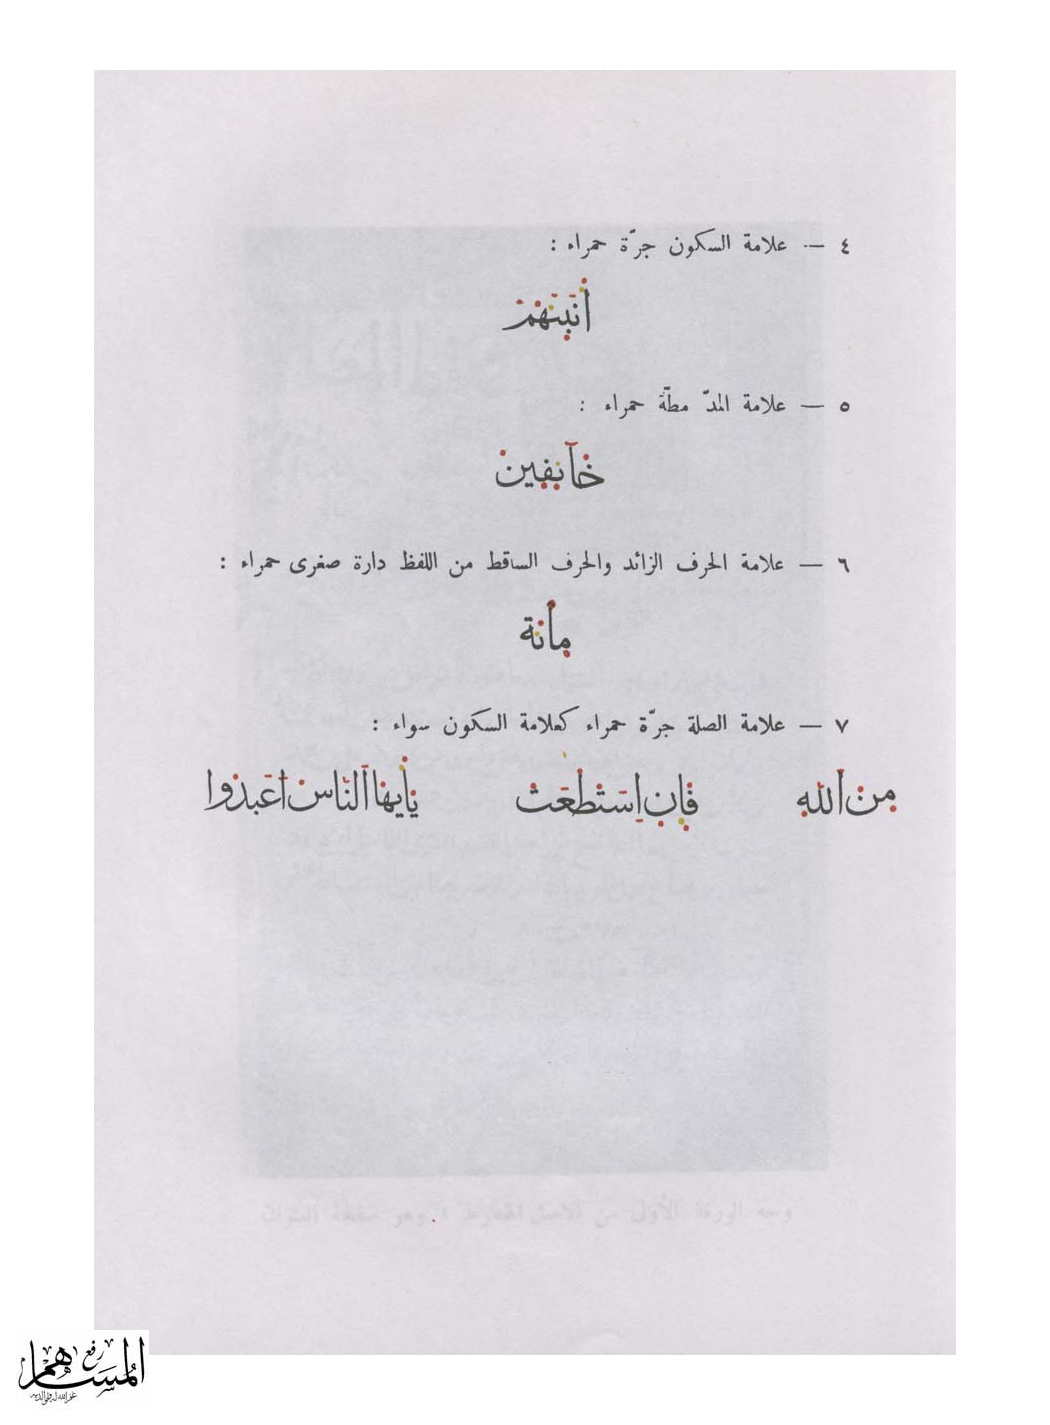 ٤ — علامة السكون جرّة حمراء :
أنبئهم
٥ — علامة المدّ مطّة حمراء :
خآئفين
٦ — علامة الحرف الزائد والحرف الساقط من اللفظ دارة صغرى حمراء :
مائة
٧ — علامة الصلة جرّة حمراء كعلامة السكون سواء :
من الله فإن استطعت يأيها الناس اعبدوا
رفع
المساهم
غفر الله له ولوالديه